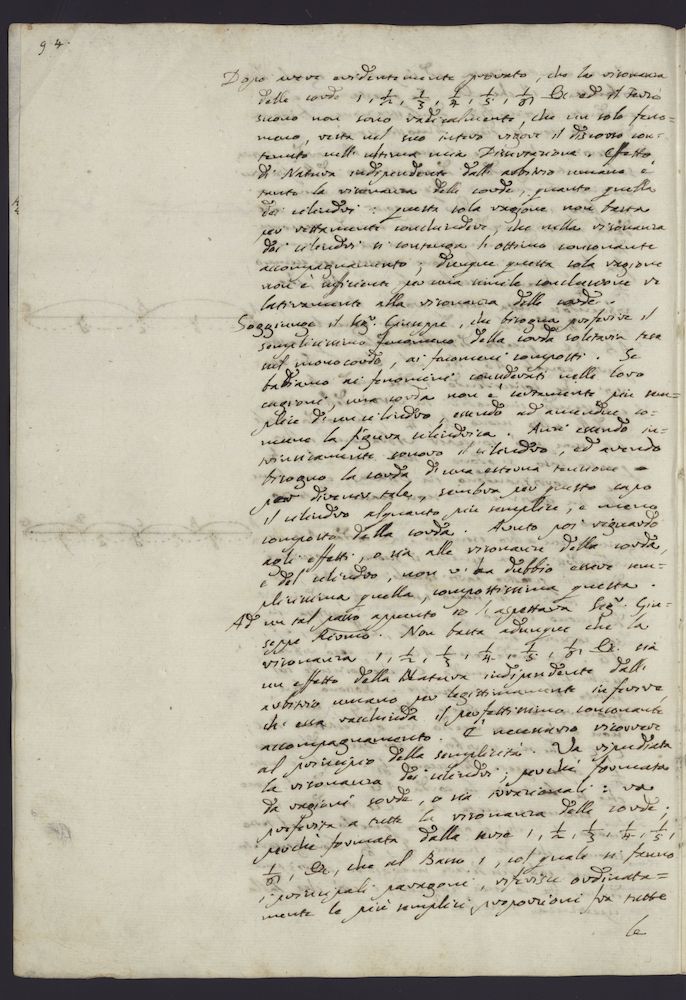 94.
Dopo avere evidentemente provato, che la risonanza
delle corde 1, 1/2, 1/3, 1/4, 1/5, 1/6, &c. ed il terzo
suono non sono radicalmente, che un solo feno=
meno, resta nel suo intero vigore il discorso con=
tenuto nell' ultima mia Dissertazione. Effetto
di Natura indipendente dall' arbitrio umano è
tanto la risonanza delle corde, quanto quella
dei cilindri: questa sola ragione non basta
per rettamente conchiudere, che nella risonanza
dei cilindri si contenga l' ottimo consonante
accompagnamento; dunque questa sola ragione
non è sufficiente per una simile conclusione re
lativamente alla risonanza delle corde.
Soggiunge il Sig.r Giuseppe, che bisogna preferire il
semplicissimo fenomeno della corda solitaria tesa
nel monocordo, ai fenomeni composti. Se
badiamo ai fenomeni considerati nelle loro
cagioni, una corda non è certamente più sem=
plice di un cilindro, essendo ad amendue co=
mune la figura cilindrica. Anzi essendo in=
trinsicamente sonoro il cilindro, ed avendo
bisogno la corda di una esterna tensione
per divenir tale, sembra per questo capo
il cilindro alquanto più semplice, e meno
composto della corda. Avuto poi riguardo
agli effetti, o sia alle risonanze della corda,
e del cilindro, non v' ha dubbio essere sem=
plicissima quella, compostissima questa.
Ad un tal passo appunto io l' aspettava Sig.r Giu=
seppe Stimo. Non basta adunque che la
risonanza 1, 1/2, 1/3, 1/4, 1/5, 1/6, &c. sia
un effetto della Natura indipendente dall'
arbitrio umano per legittimamente inferire
ch' essa racchiuda il perfettissimo consonante
accompagnamento. È necessario ricorrere
al principio della semplicità. Va ripudiata
la risonanza dei cilindri; perchè formata
da ragioni sorde, o sia irrazionali: va
preferita a tutte la risonanza delle corde;
perchè formata dalla serie 1, 1/2, 1/3, 1/4, 1/5,
1/6, &c, che al Basso 1, col quale si fanno
i principali paragoni, riferisce ordinata=
mente le più semplici proporzioni fra tutte
le